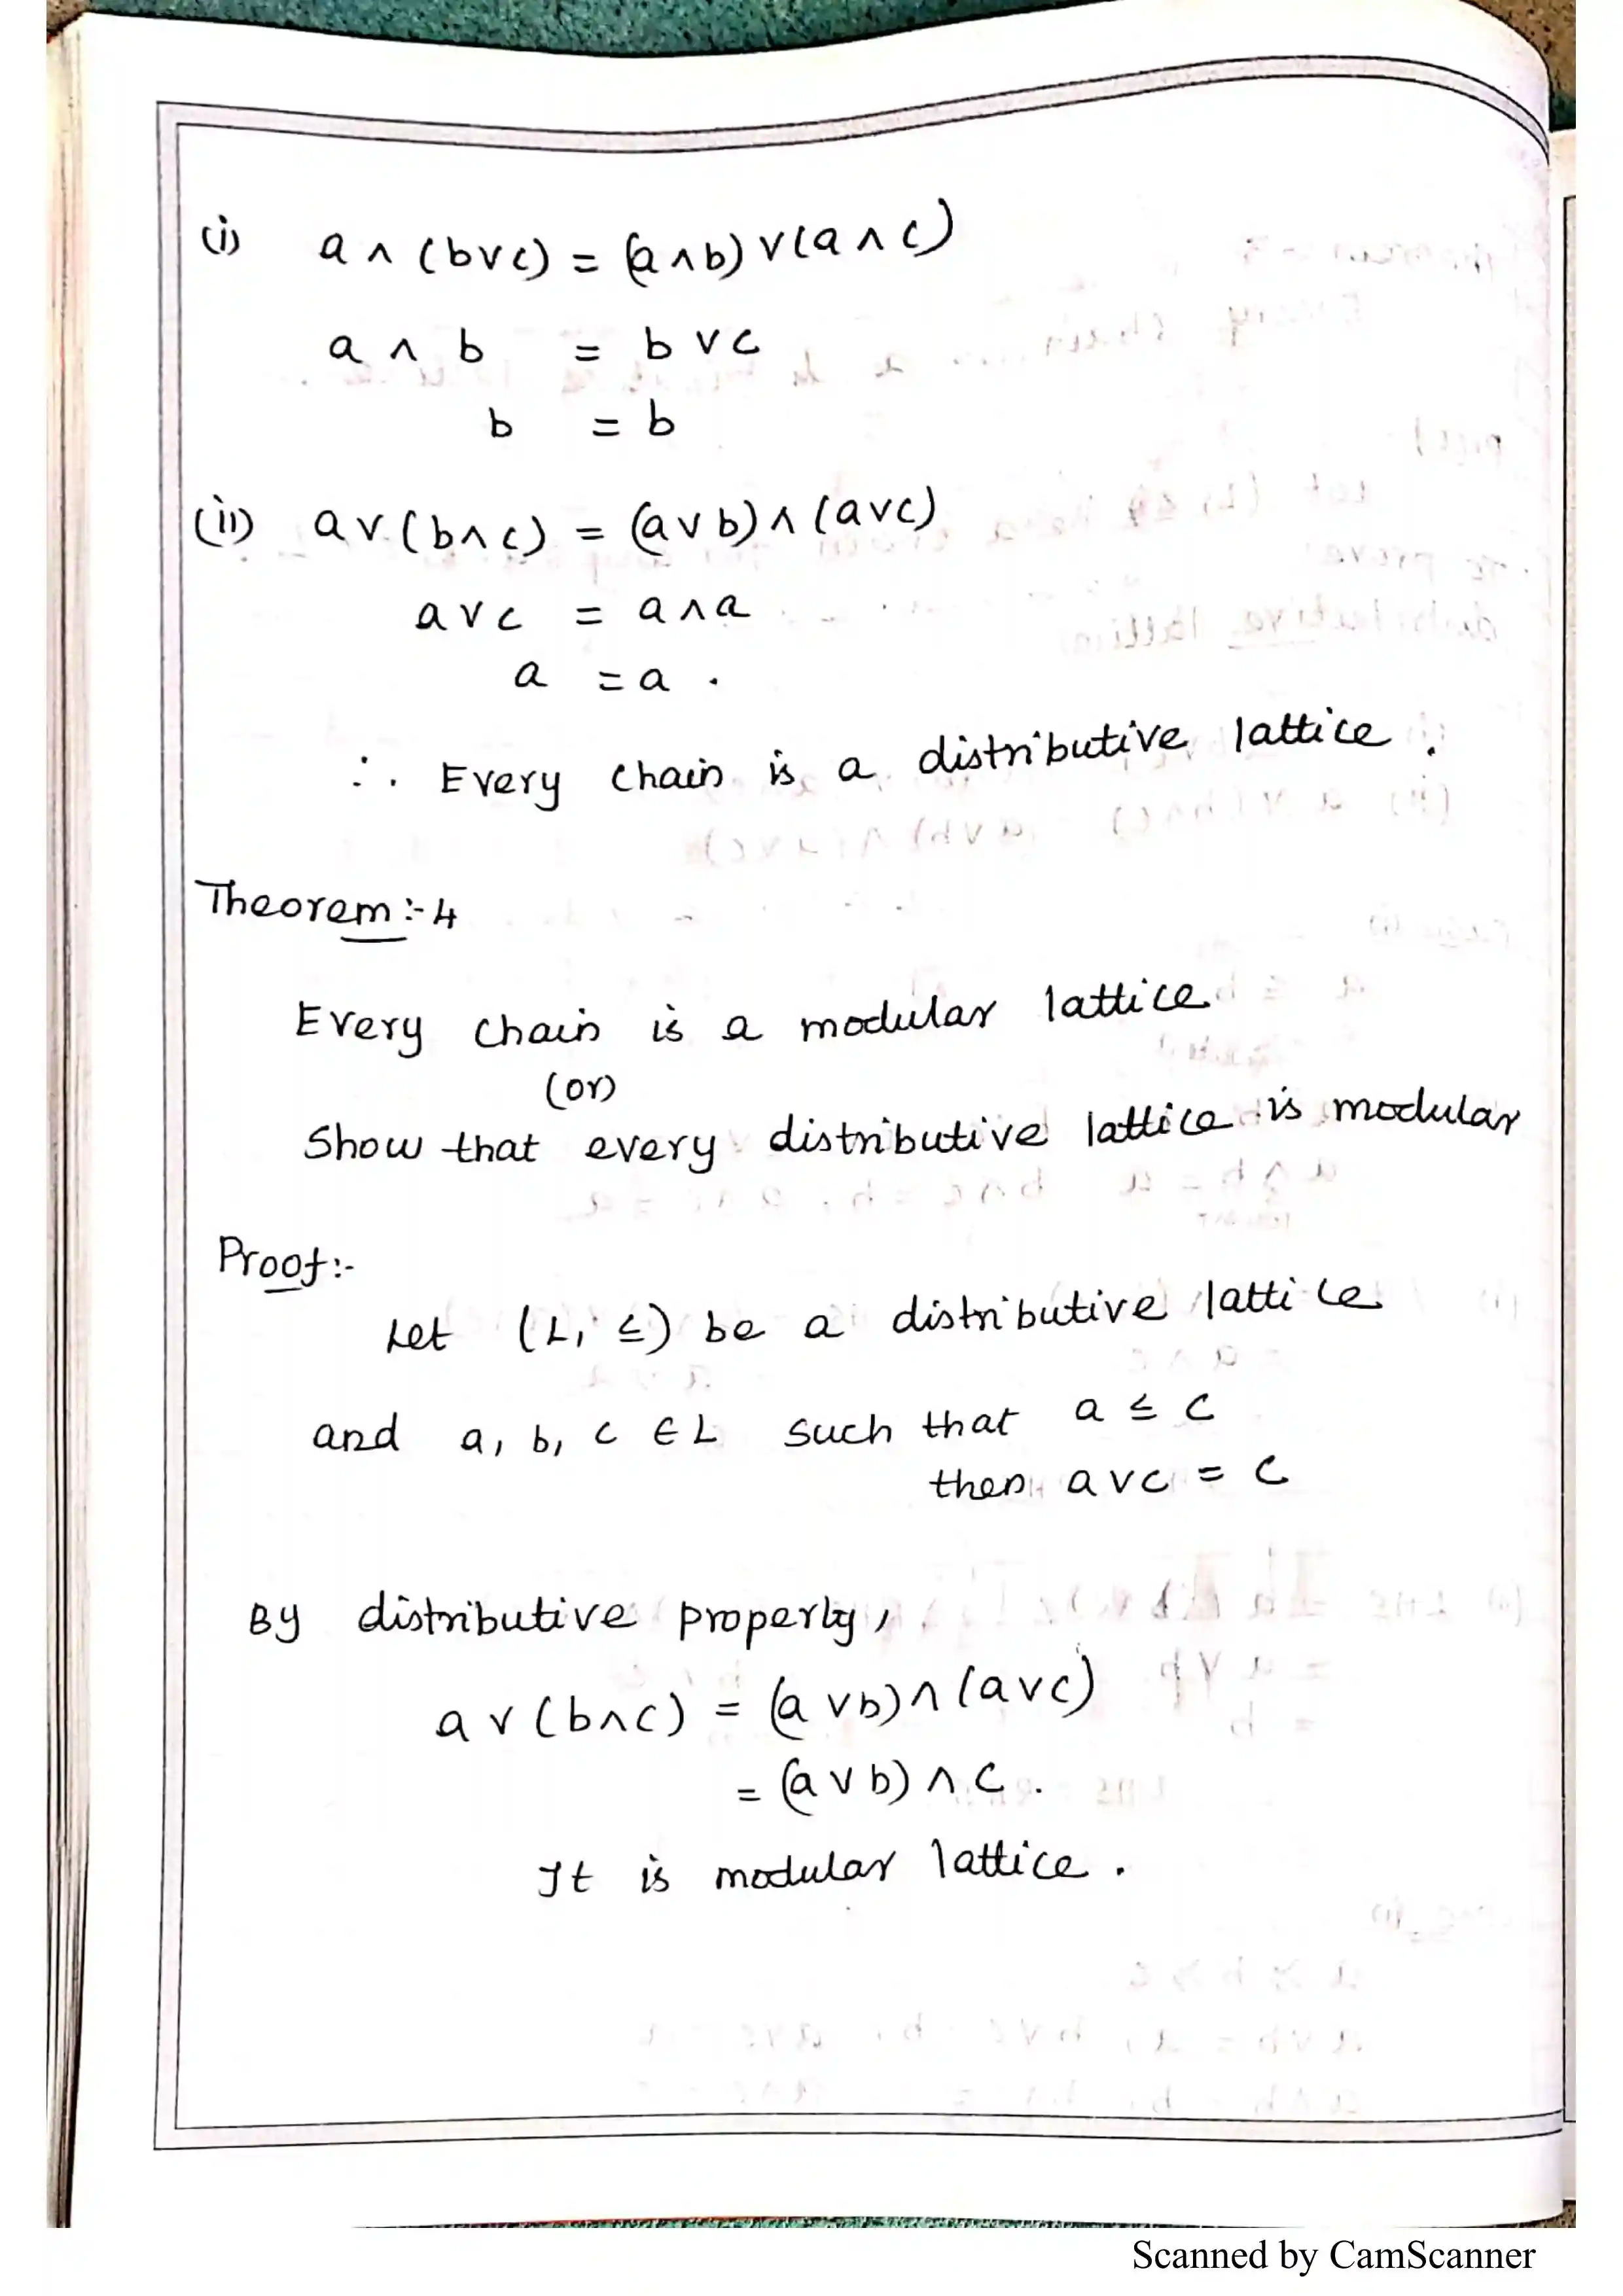 (i) a ∧ (b∨c) = (a∧b) ∨ (a∧c)
a ∧ b = b ∨ c
b = b
(ii) a ∨ (b∧c) = (a∨b) ∧ (a∨c)
a ∨ c = a ∧ a
a = a .
∴ Every chain is a distributive lattice .
Theorem :- 4
Every chain is a modular lattice
(or)
Show that every distributive lattice is modular
Proof :-
Let (L, ≤) be a distributive lattice
and a, b, c ∈ L such that a ≤ c
then a ∨ c = c
By distributive property,
a ∨ (b∧c) = (a ∨ b) ∧ (a ∨ c)
= (a ∨ b) ∧ c .
It is modular lattice .
Scanned by CamScanner